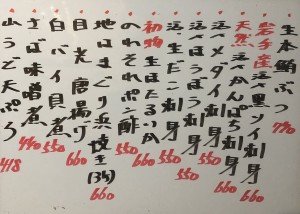 生本鮪ぶつ 770
岩手産活黒ソイ刺 660
天然活かんぱち刺身 660
活〆メダイ刺身 550
活〆ほうぼう刺身 550
活生だこ刺身 550
初物生ほたるいか 660
のれそれポン酢 550
地はまぐり浜焼き(3ケ) 660
目光唐揚げ 660
白バイ貝煮 550
さば味噌煮 440
山うど天ぷら 418